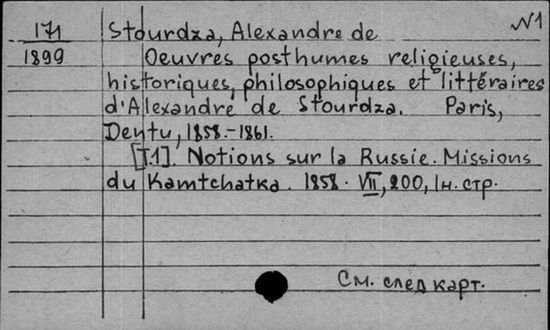 171 Stourdza, Alexandre de №1
1899 Oeuvres posthumes religieuses,
historiques, philosophiques et littéraires
d'Alexandre de Stourdza. Paris,
Dentu, 1858.-1861.
[T.1]. Notions sur la Russie. Missions
du Kamtchatka. 1858. VII, 200, 1н. стр.
См. след карт.